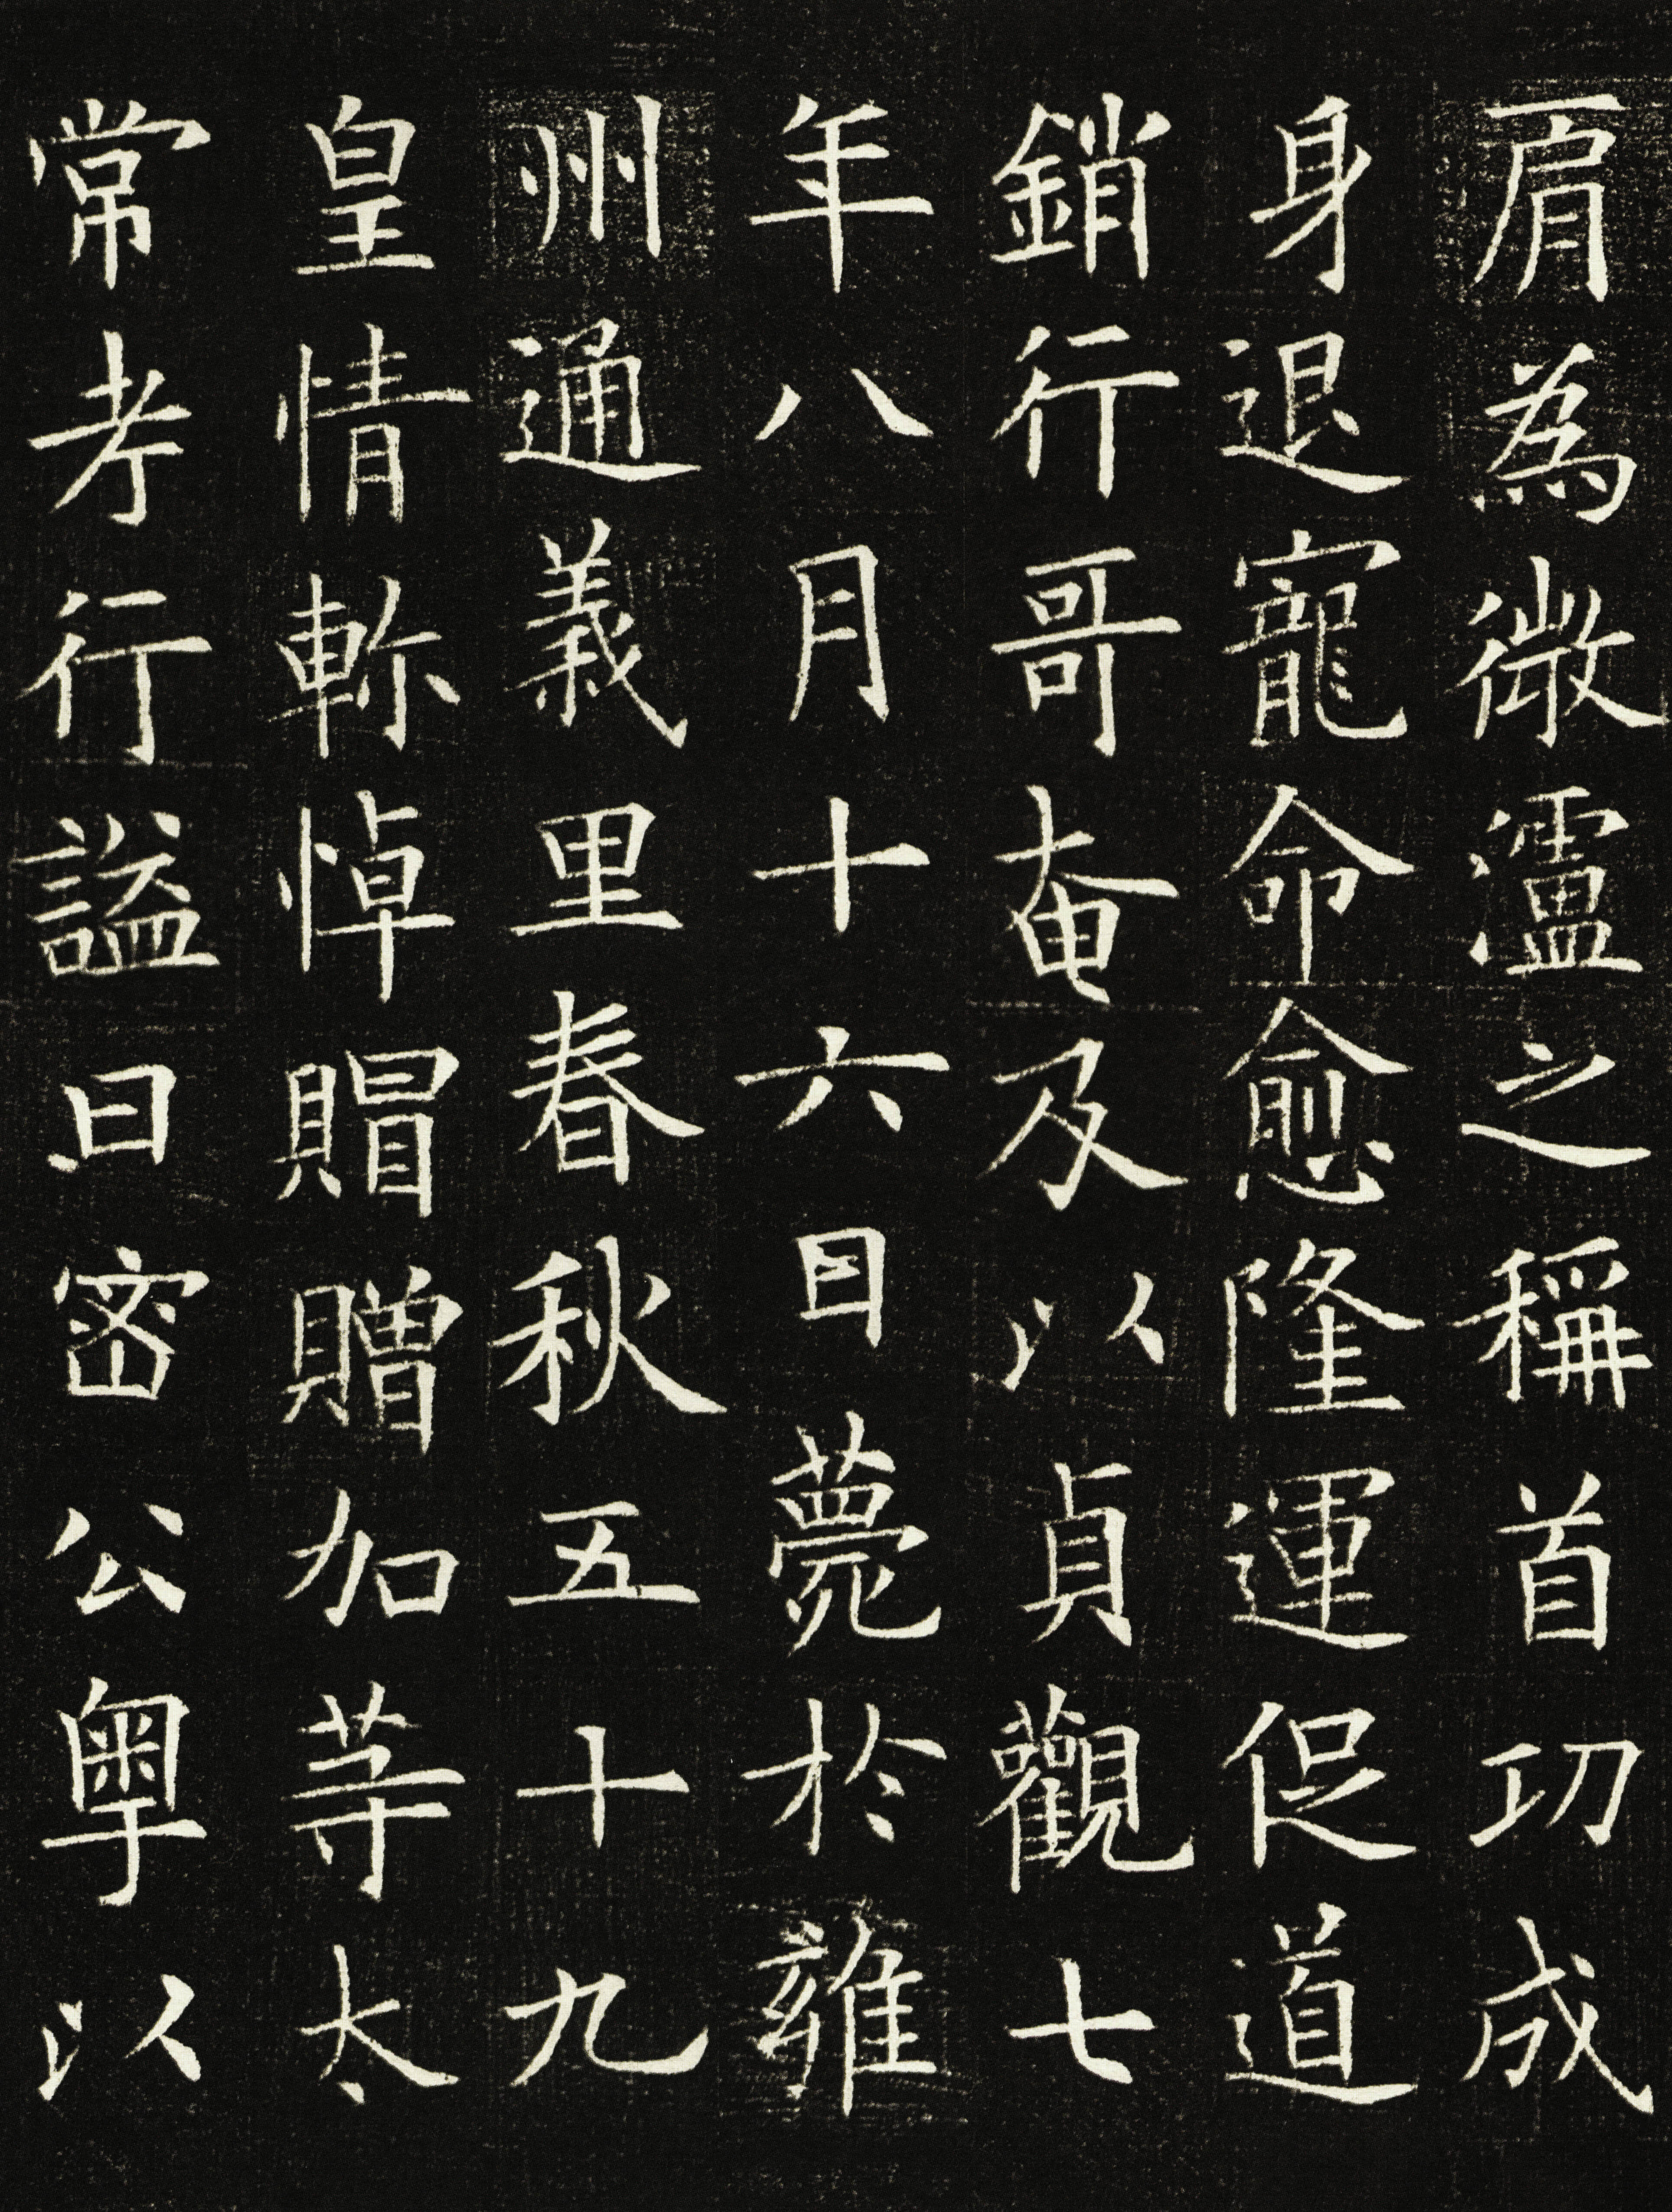 肩為微瀘之稱首功成
身退寵命愈隆運促道
銷行哥奄及以貞觀七
年八月十六日薨於雍
州通義里春秋五十九
皇情軫悼賵贈加等太
常考行謚曰密公粤以